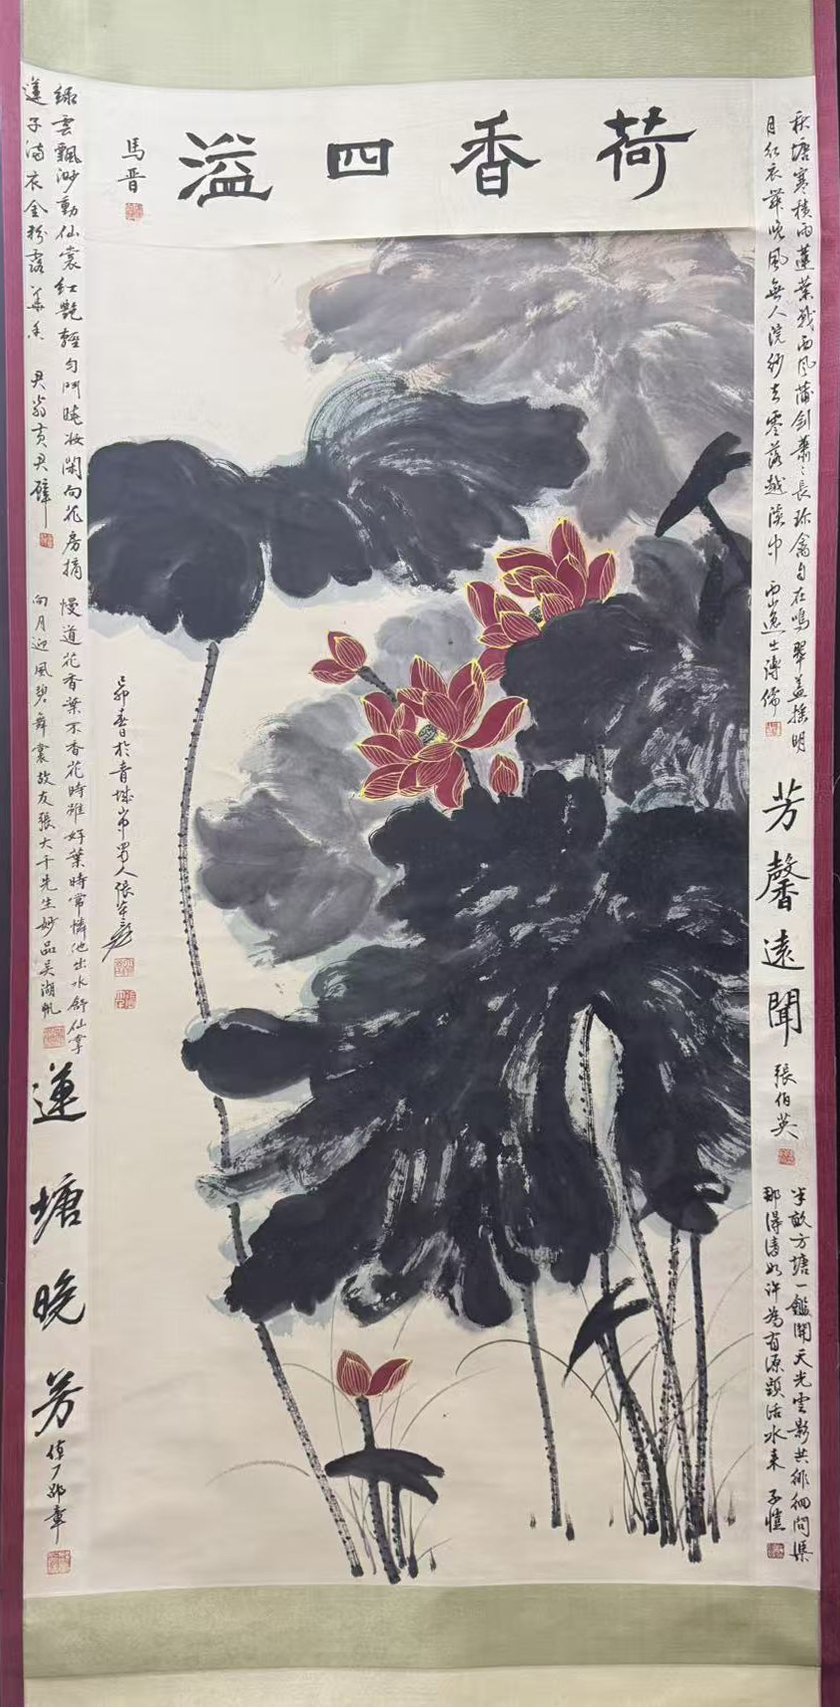 荷香四溢
馬晉
秋塘寒積雨蓮葉戰西風蒲劍蕭〻長珍禽自在鳴翠蓋搖明
月紅衣舞晚風無人浣紗去零落越溪中 西山逸士溥儒
芳馨遠聞
張伯英
半畝方塘一鑑開天光雲影共徘徊問渠
那得清如許為有源頭活水来 子愷
己卯春日於青城山常蜀人張大千爰
綠雲飄渺動仙裳紅艷輕勻鬥晚妝閑向花房摘
蓮子滿衣金粉露華香 君翁黄君璧
慢道花香葉不香花時雖好葉時常憐他出水舒仙掌
向月迎風碧舞裳故友張大千先生妙品吳湖帆
蓮塘晚芳
倬厂邵章